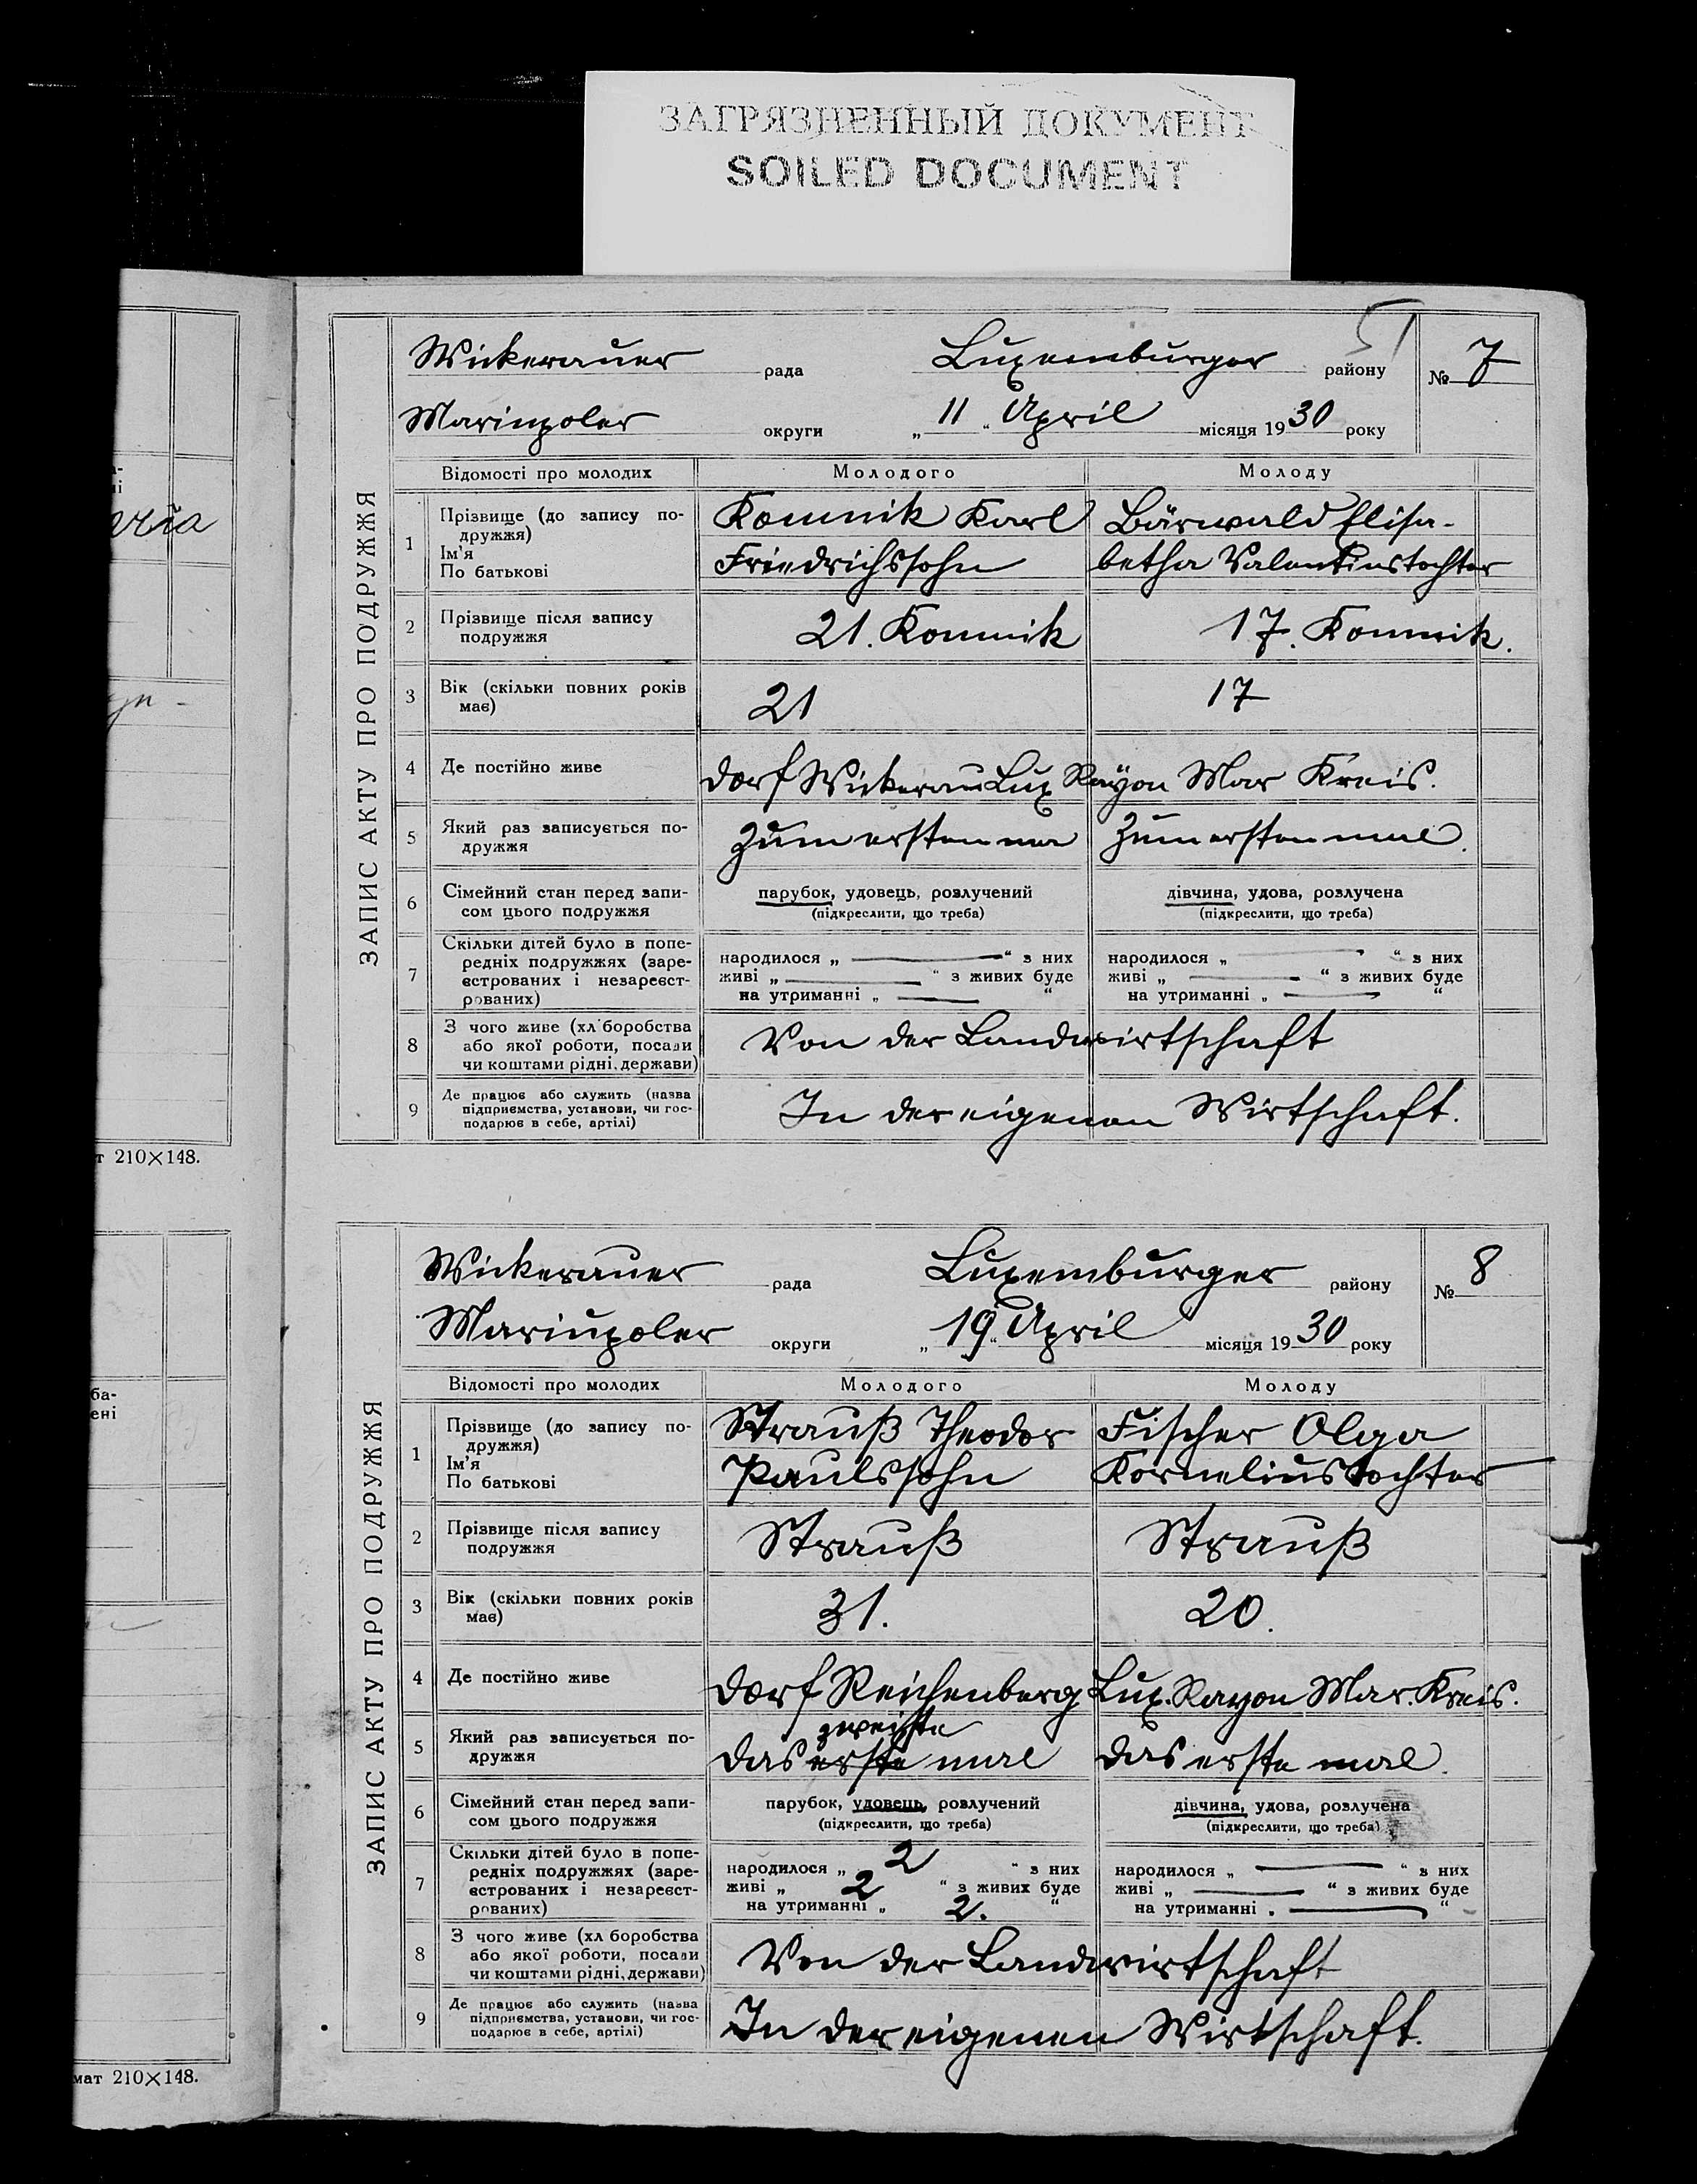 ЗАГРЯЗНЕННЫЙ ДОКУМЕНТ
SOILED DOCUMENT
51
ЗАПИС АКТУ ПРО ПОДРУЖЖЯ
Wickerauer рада Luxemburger району № 7
Mariupoler округи „ 11 “ April місяця 19 30 року
Відомості про молодих Молодого Молоду
1 Прізвище (до запису по-
дружжя)
Ім'я
По батькові
Komnik Karl
Friedrichssohn
Bärwald Elisa-
betha Valentinstochter
2 Прізвище після запису
подружжя
21. Komnik 17. Komnik.
3 Вік (скільки повних років
має)
21 17
4 Де постійно живе dorf Wickerau Lux Rayon Mar Kreis.
5 Який раз записується по-
дружжя
Zum ersten ma Zum ersten mal.
6 Сімейний стан перед запи-
сом цього подружжя
парубок, удовець, розлучений
(підкреслити, що треба)
дівчина, удова, розлучена
(підкреслити, що треба)
7 Скільки дітей було в попе-
редніх подружжях (заре-
єстрованих і незареєст-
рованих)
народилося „ — “ з них
живі „ — “ з живих буде
на утриманні „ — “
народилося „ — “ з них
живі „ — “ з живих буде
на утриманні „ — “
8 З чого живе (хліборобства
або якої роботи, посади
чи коштами рідні, держави)
Von der Landwirtschaft
9 Де працює або служить (назва
підприємства, установи, чи гос-
подарює в себе, артілі)
In der eigenen Wirtschaft.
т 210×148.
ЗАПИС АКТУ ПРО ПОДРУЖЖЯ
Wickerauer рада Luxemburger району № 8
Mariupoler округи „ 19 “ April місяця 19 30 року
Відомості про молодих Молодого Молоду
1 Прізвище (до запису по-
дружжя)
Ім'я
По батькові
Strauß Theodor
Paulssohn
Fischer Olga
Korneliustochter
2 Прізвище після запису
подружжя
Strauß Strauß
3 Вік (скільки повних років
має)
31. 20.
4 Де постійно живе dorf Reichenberg Lux. Rayon Mar. Kreis.
5 Який раз записується по-
дружжя
zweite
das erste mal das erste mal.
6 Сімейний стан перед запи-
сом цього подружжя
парубок, удовець, розлучений
(підкреслити, що треба)
дівчина, удова, розлучена
(підкреслити, що треба)
7 Скільки дітей було в попе-
редніх подружжях (заре-
єстрованих і незареєст-
рованих)
народилося „ 2 “ з них
живі „ 2 “ з живих буде
на утриманні „ 2. “
народилося „ — “ з них
живі „ — “ з живих буде
на утриманні „ — “
8 З чого живе (хліборобства
або якої роботи, посади
чи коштами рідні, держави)
Von der Landwirtschaft
9 Де працює або служить (назва
підприємства, установи, чи гос-
подарює в себе, артілі)
In der eigenen Wirtschaft.
мат 210×148.